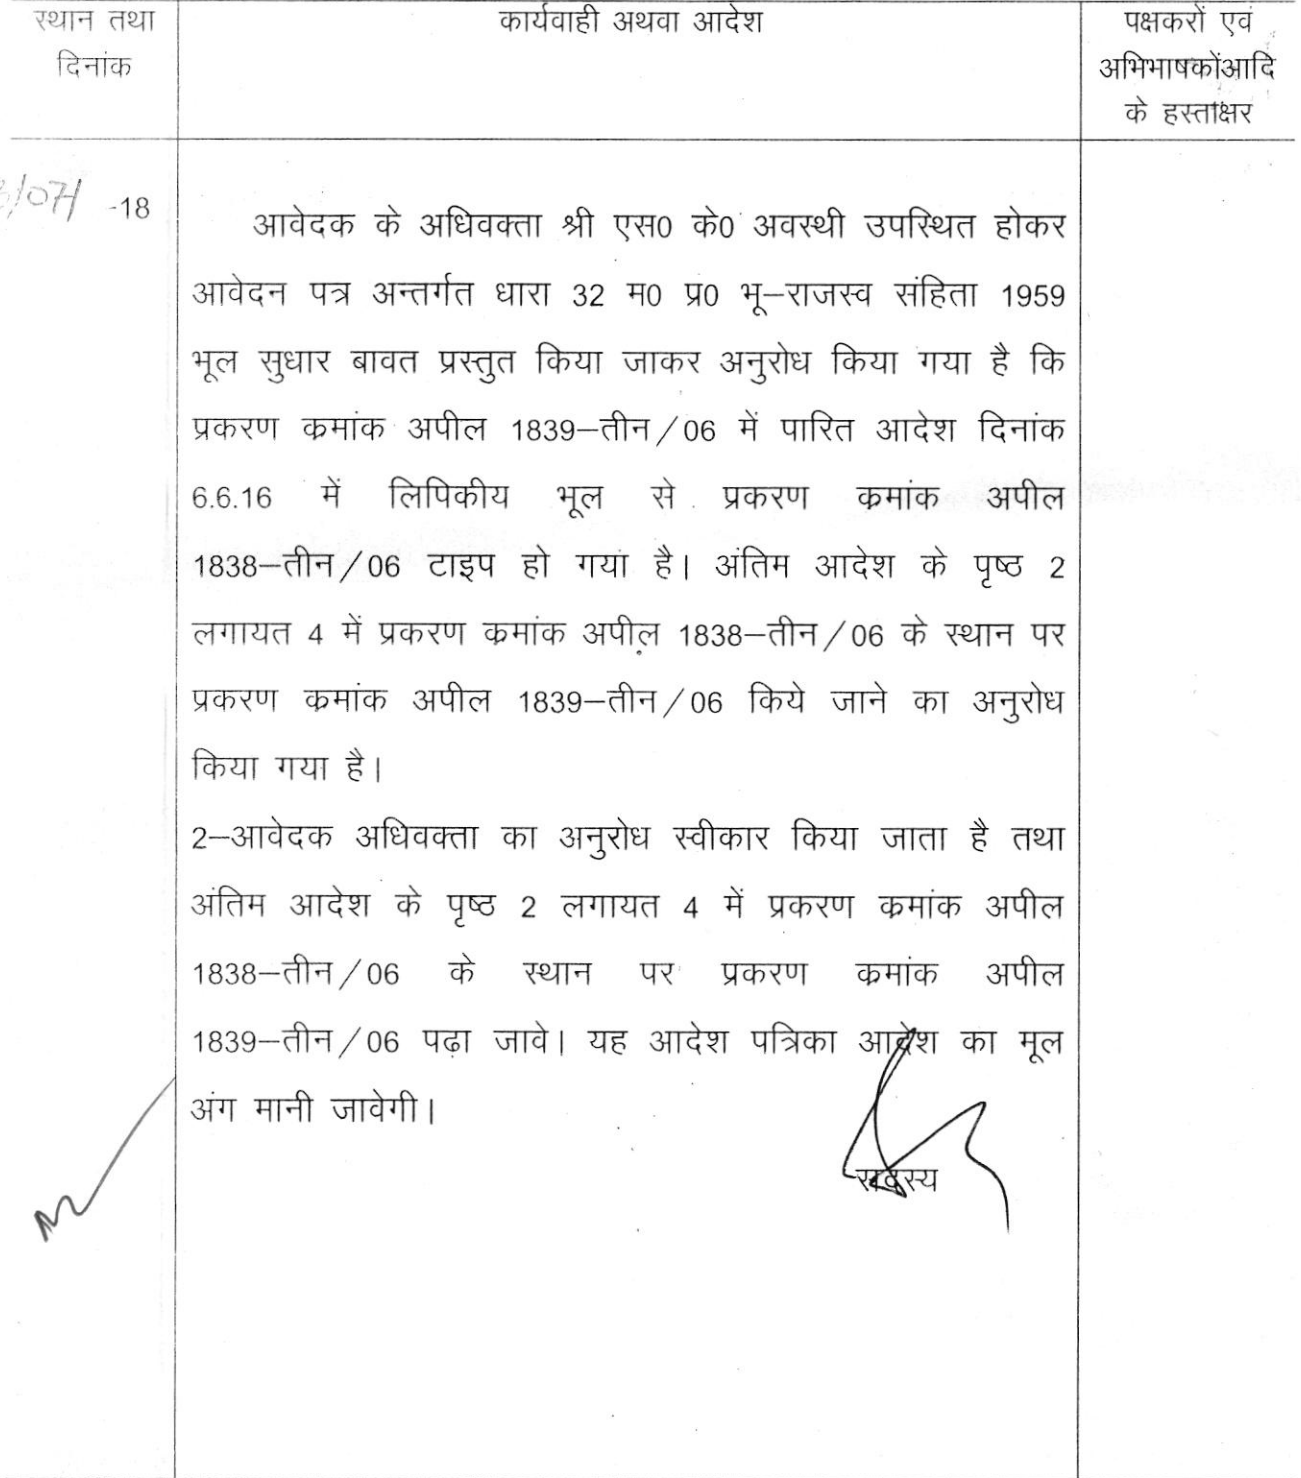 स्थान तथा
दिनांक
कार्यवाही अथवा आदेश
पक्षकरों एवं
अभिभाषकोंआदि
के हस्ताक्षर
/07/ -18
आवेदक के अधिवक्ता श्री एस0 के0 अवस्थी उपस्थित होकर
आवेदन पत्र अन्तर्गत धारा 32 म0 प्र0 भू–राजस्व संहिता 1959
भूल सुधार बावत प्रस्तुत किया जाकर अनुरोध किया गया है कि
प्रकरण क्रमांक अपील 1839–तीन/06 में पारित आदेश दिनांक
6.6.16 में लिपिकीय भूल से प्रकरण क्रमांक अपील
1838–तीन/06 टाइप हो गया है। अंतिम आदेश के पृष्ठ 2
लगायत 4 में प्रकरण क्रमांक अपील 1838–तीन/06 के स्थान पर
प्रकरण क्रमांक अपील 1839–तीन/06 किये जाने का अनुरोध
किया गया है।
2–आवेदक अधिवक्ता का अनुरोध स्वीकार किया जाता है तथा
अंतिम आदेश के पृष्ठ 2 लगायत 4 में प्रकरण क्रमांक अपील
1838–तीन/06 के स्थान पर प्रकरण क्रमांक अपील
1839–तीन/06 पढ़ा जावे। यह आदेश पत्रिका आदेश का मूल
अंग मानी जावेगी।
सदस्य